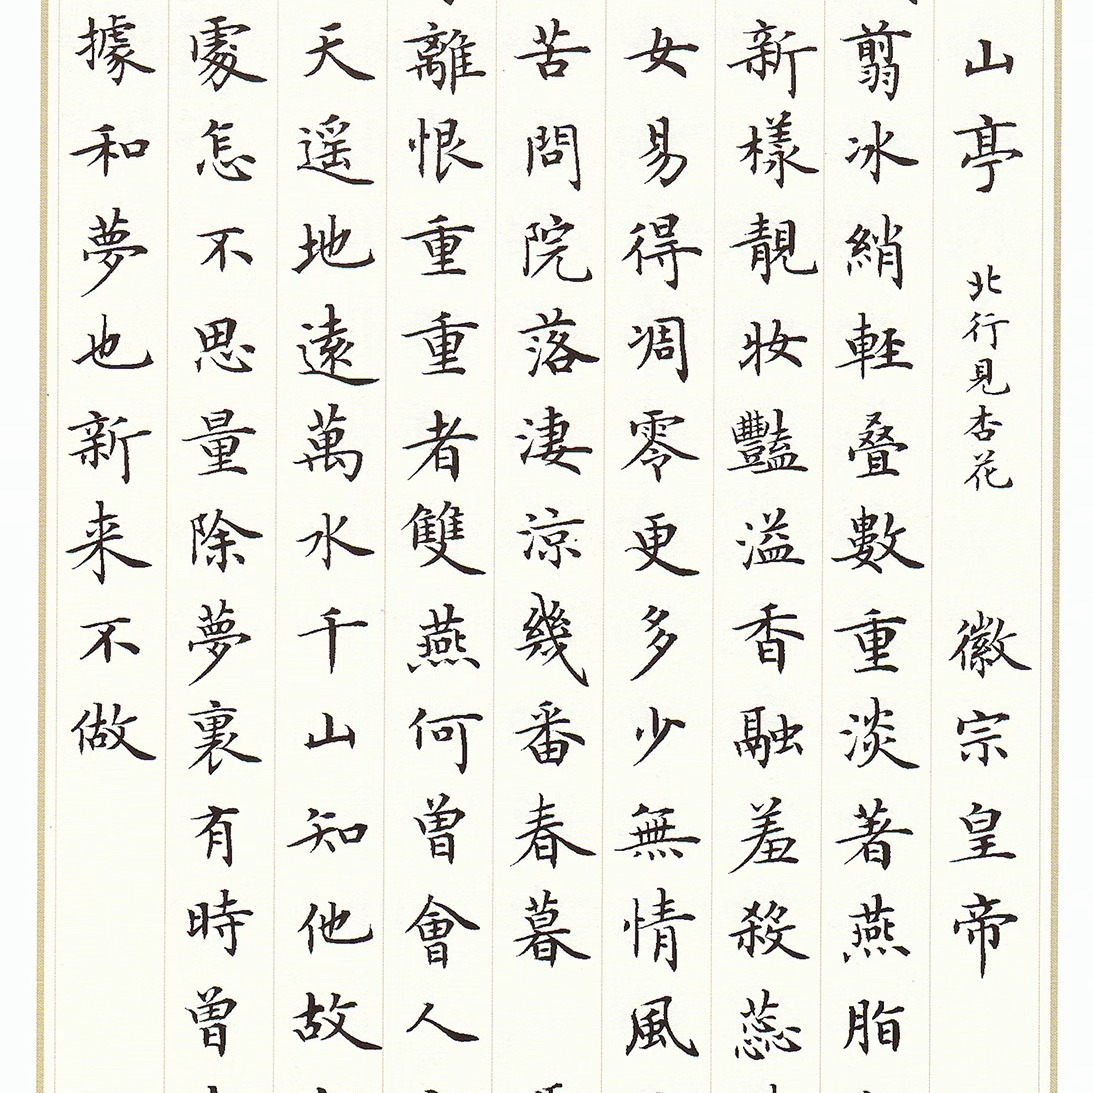 山亭 北行見杏花 徽宗皇帝
翦冰綃輕叠數重淡著燕脂
新樣靚妝豔溢香融羞殺蕊
女易得凋零更多少無情風
苦問院落淒涼幾番春暮
離恨重重者雙燕何曾會人
天遥地遠萬水千山知他故
處怎不思量除夢裏有時曾
據和夢也新来不做